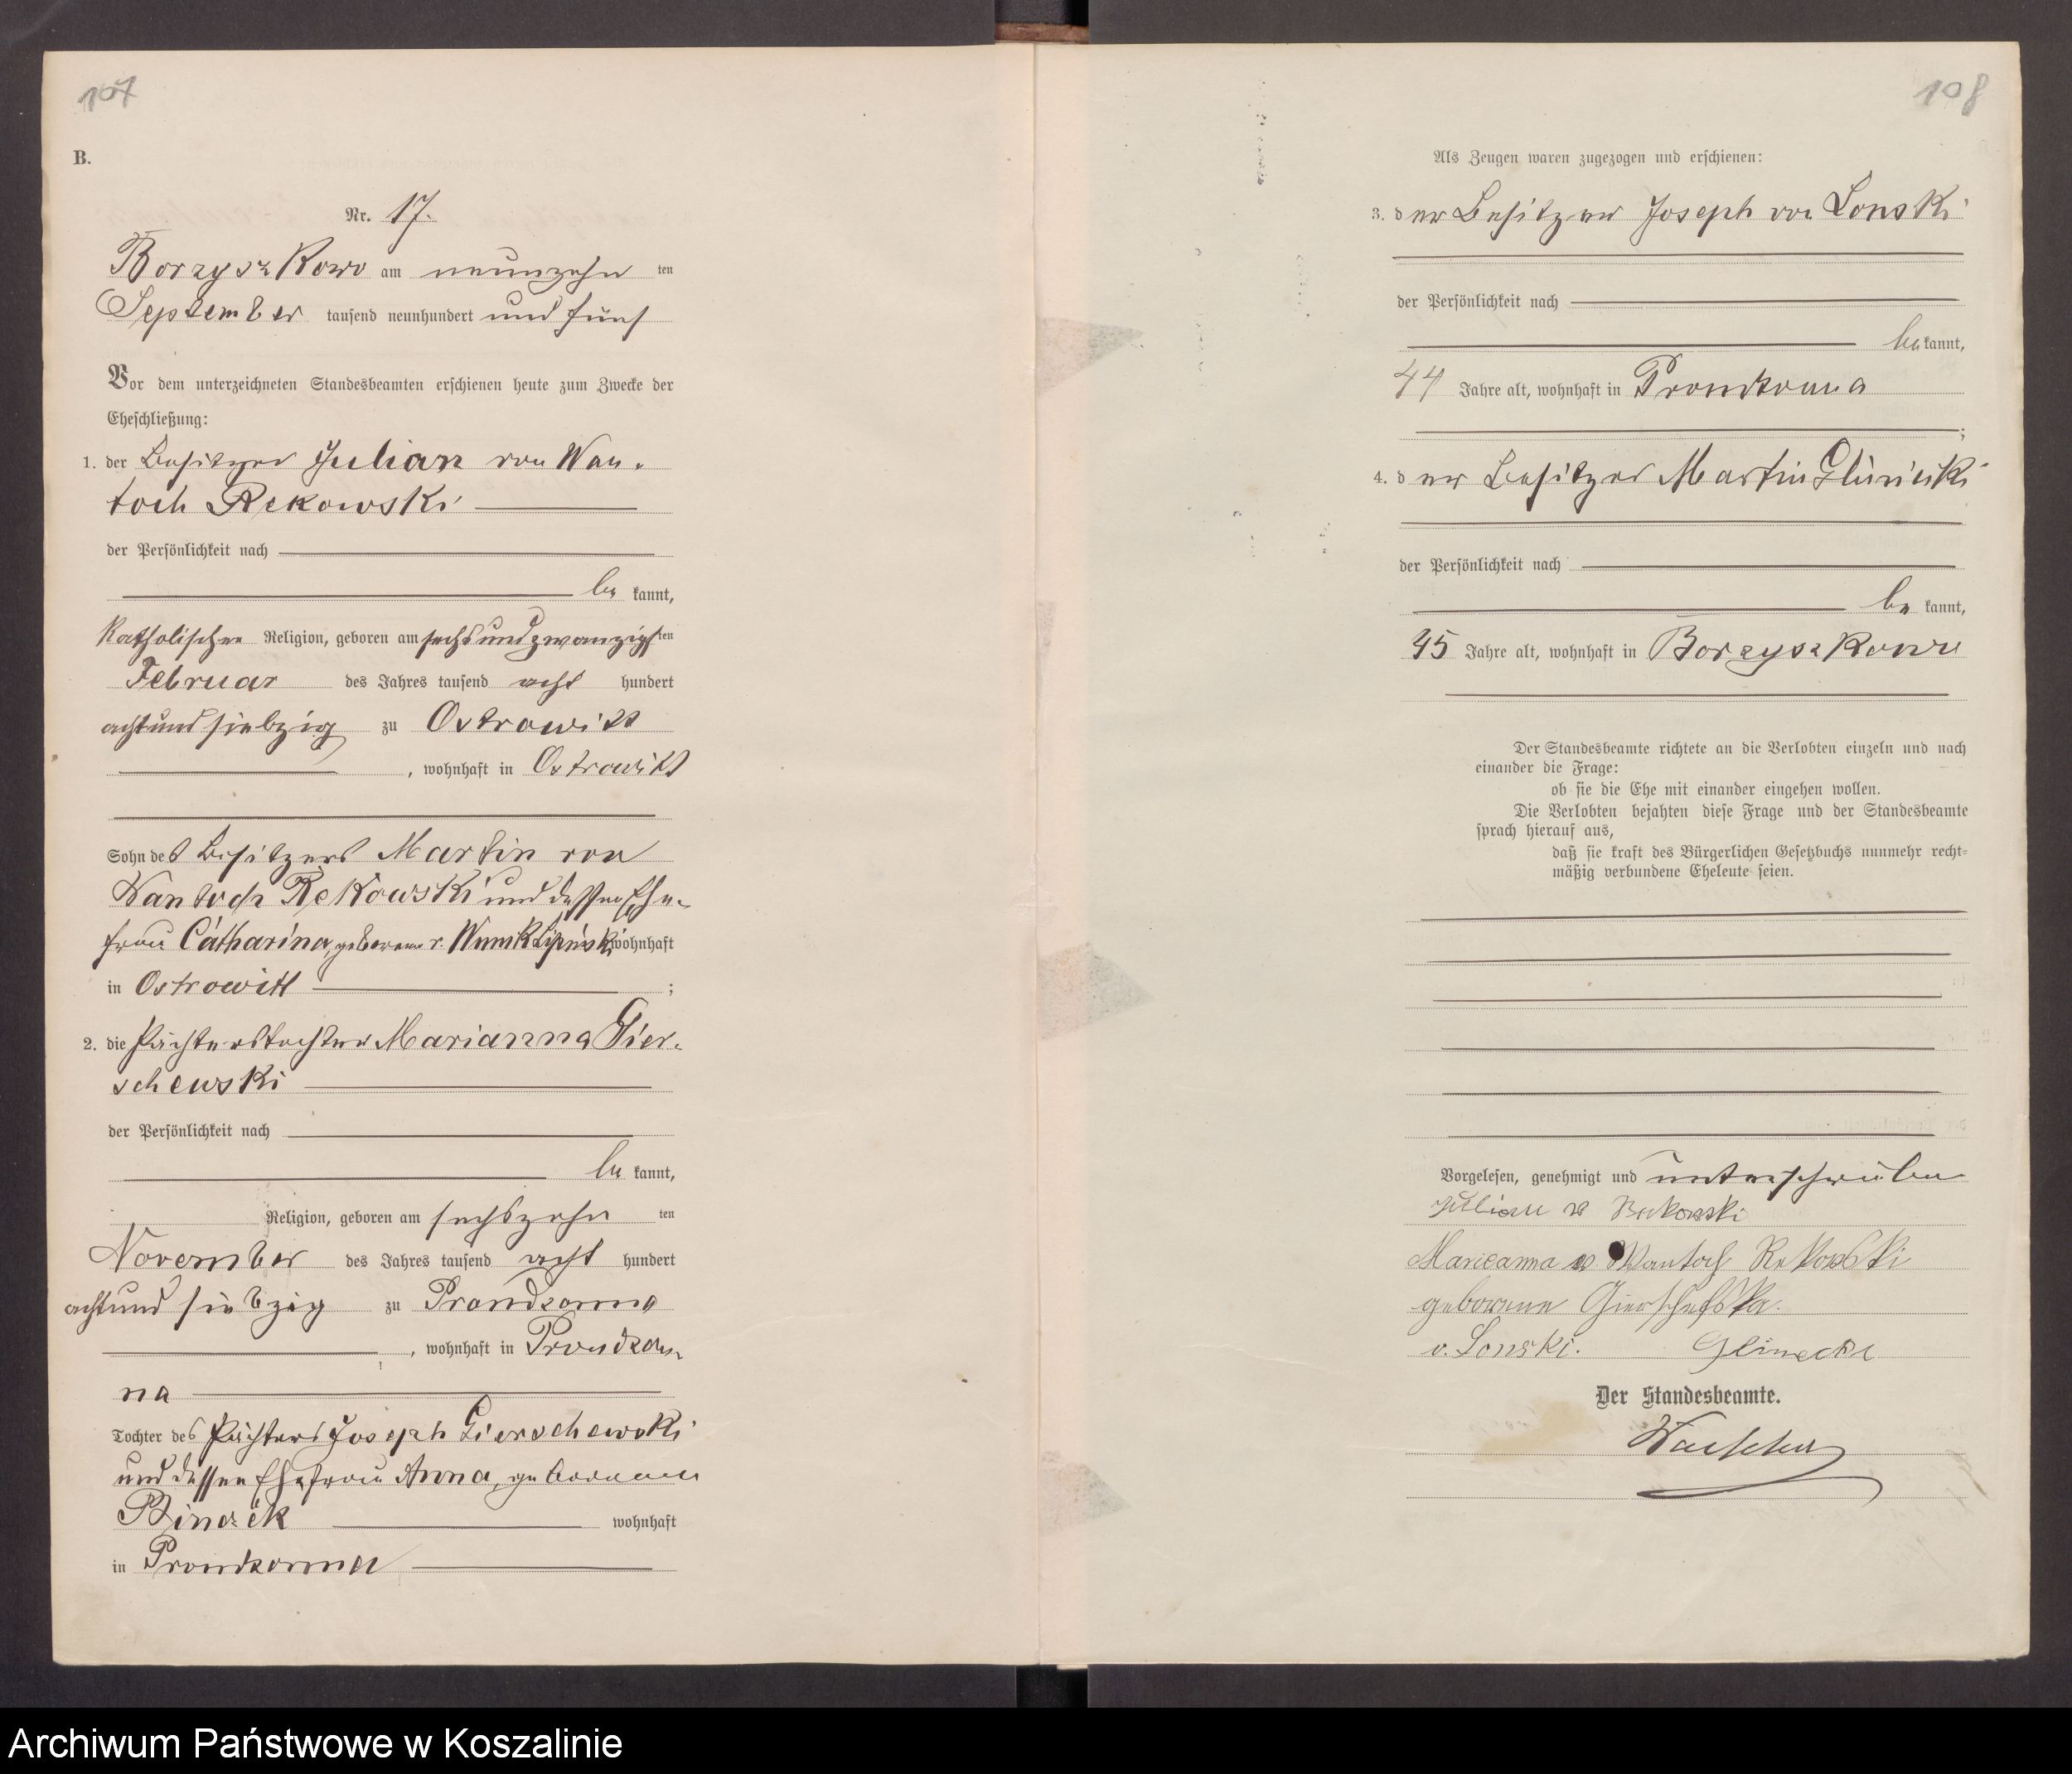 107
B.
Nr. 17.
Borzyszkowo am neunzehn ten
September tausend neunhundert und fünf
Vor dem unterzeichneten Standesbeamten erschienen heute zum Zwecke der
Eheschließung:
1. der Besitzer Julian von Wan-
toch Rekowski
der Persönlichkeit nach
be kannt,
katholischer Religion, geboren am sechsundzwanzigsten
Februar des Jahres tausend acht hundert
achtundsiebzig zu Ostrowitt
, wohnhaft in Ostrowitt
Sohn des Besitzers Martin von
Wantoch Rekowski und dessen Ehe-
frau Catharina, geborene v. wohnhaft
in Ostrowitt ;
2. die Pächterstochter Marianna Gier-
schewski
der Persönlichkeit nach
be kannt,
Religion, geboren am sechszehn ten
November des Jahres tausend acht hundert
achtundsiebzig zu Prondzonna
, wohnhaft in Prondzon-
na
Tochter des Pächters Joseph Gierschewski
und dessen Ehefrau Anna, geborenen
wohnhaft
in Prondzonna
108
Als Zeugen waren zugezogen und erschienen:
3. der Besitzer Joseph von Lonski
der Persönlichkeit nach
bekannt,
44 Jahre alt, wohnhaft in Prondzonna
;
4. der Besitzer Martin Glinicki
der Persönlichkeit nach
be kannt,
45 Jahre alt, wohnhaft in Borzyszkowo
Der Standesbeamte richtete an die Verlobten einzeln und nach
einander die Frage:
ob sie die Ehe mit einander eingehen wollen.
Die Verlobten bejahten diese Frage und der Standesbeamte
sprach hierauf aus,
daß sie kraft des Bürgerlichen Gesetzbuchs nunmehr recht-
mäßig verbundene Eheleute seien.
Vorgelesen, genehmigt und unterschrieben
Julian v Rekowski
Marieanna v Wantoch Rekowski
geborene Gierschefska.
v. Lonski. Glinecki
Der Standesbeamte.
Archiwum Państwowe w Koszalinie